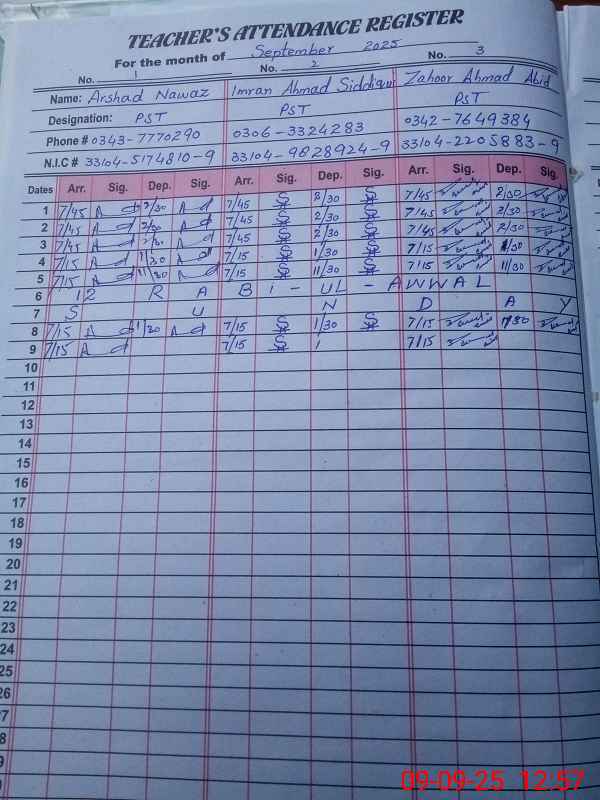 TEACHER'S ATTENDANCE REGISTER
For the month of September 2025
No. 1 No. 2 No. 3
Name: Arshad Nawaz Imran Ahmad Siddiqui Zahoor Ahmad Abid
Designation: PST PST PST
Phone # 0343-7770290 0306-3324283 0342-7649384
N.I.C # 33104-5174810-9 33104-9828924-9 33104-2205883-9
Dates Arr. Sig. Dep. Sig. Arr. Sig. Dep. Sig. Arr. Sig. Dep. Sig.
1 7/45 2/30 7/45 2/30 7/45 2/30
2 7/45 2/30 7/45 2/30 7/45 2/30
3 7/45 2/30 7/45 2/30 7/45 2/30
4 7/15 1/30 7/15 1/30 7/15 1/30
5 7/15 11/30 7/15 11/30 7/15 11/30
6 12 RABi-UL-AWWAL
7 SUNDAY
8 7/15 1/30 7/15 1/30 7/15 1/30
9 7/15 7/15 1 7/15
10
11
12
13
14
15
16
17
18
19
20
21
22
23
24
25
26
7
8
9
09-09-25 12:57